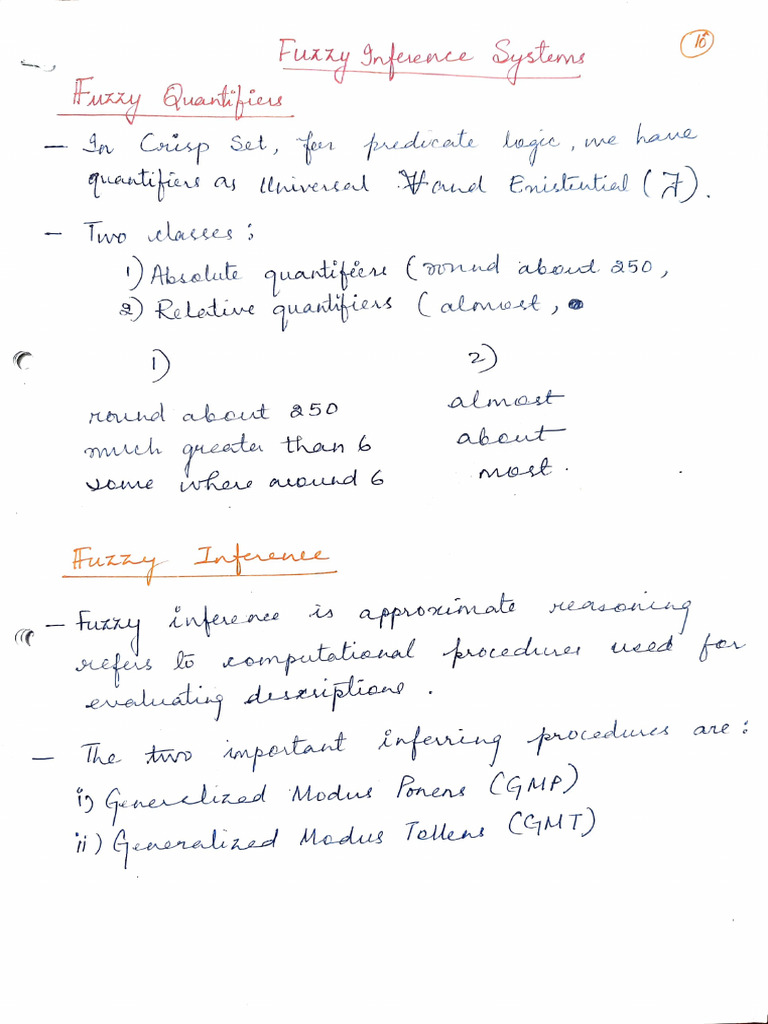 Fuzzy Inference Systems
16
Fuzzy Quantifiers
— In Crisp Set, for predicate logic, we have
quantifiers as Universal ∀ and Enistential (∃).
— Two classes:
1) Absolute quantifiers (round about 250,
2) Relative quantifiers (almost,
1) 2)
round about 250 almost
much greater than 6 about
some where around 6 most.
Fuzzy Inference
— Fuzzy inference is approximate reasoning
refers to computational procedures used for
evaluating descriptions.
— The two important inferring procedures are:
i) Generalized Modus Ponens (GMP)
ii) Generalized Modus Tollens (GMT)